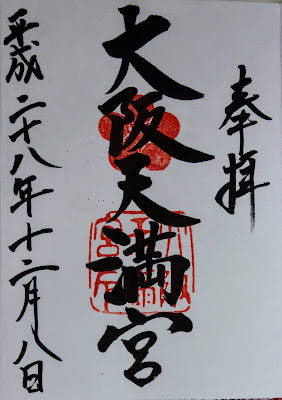 奉拝
大阪天満宮
平成二十八年十二月八日